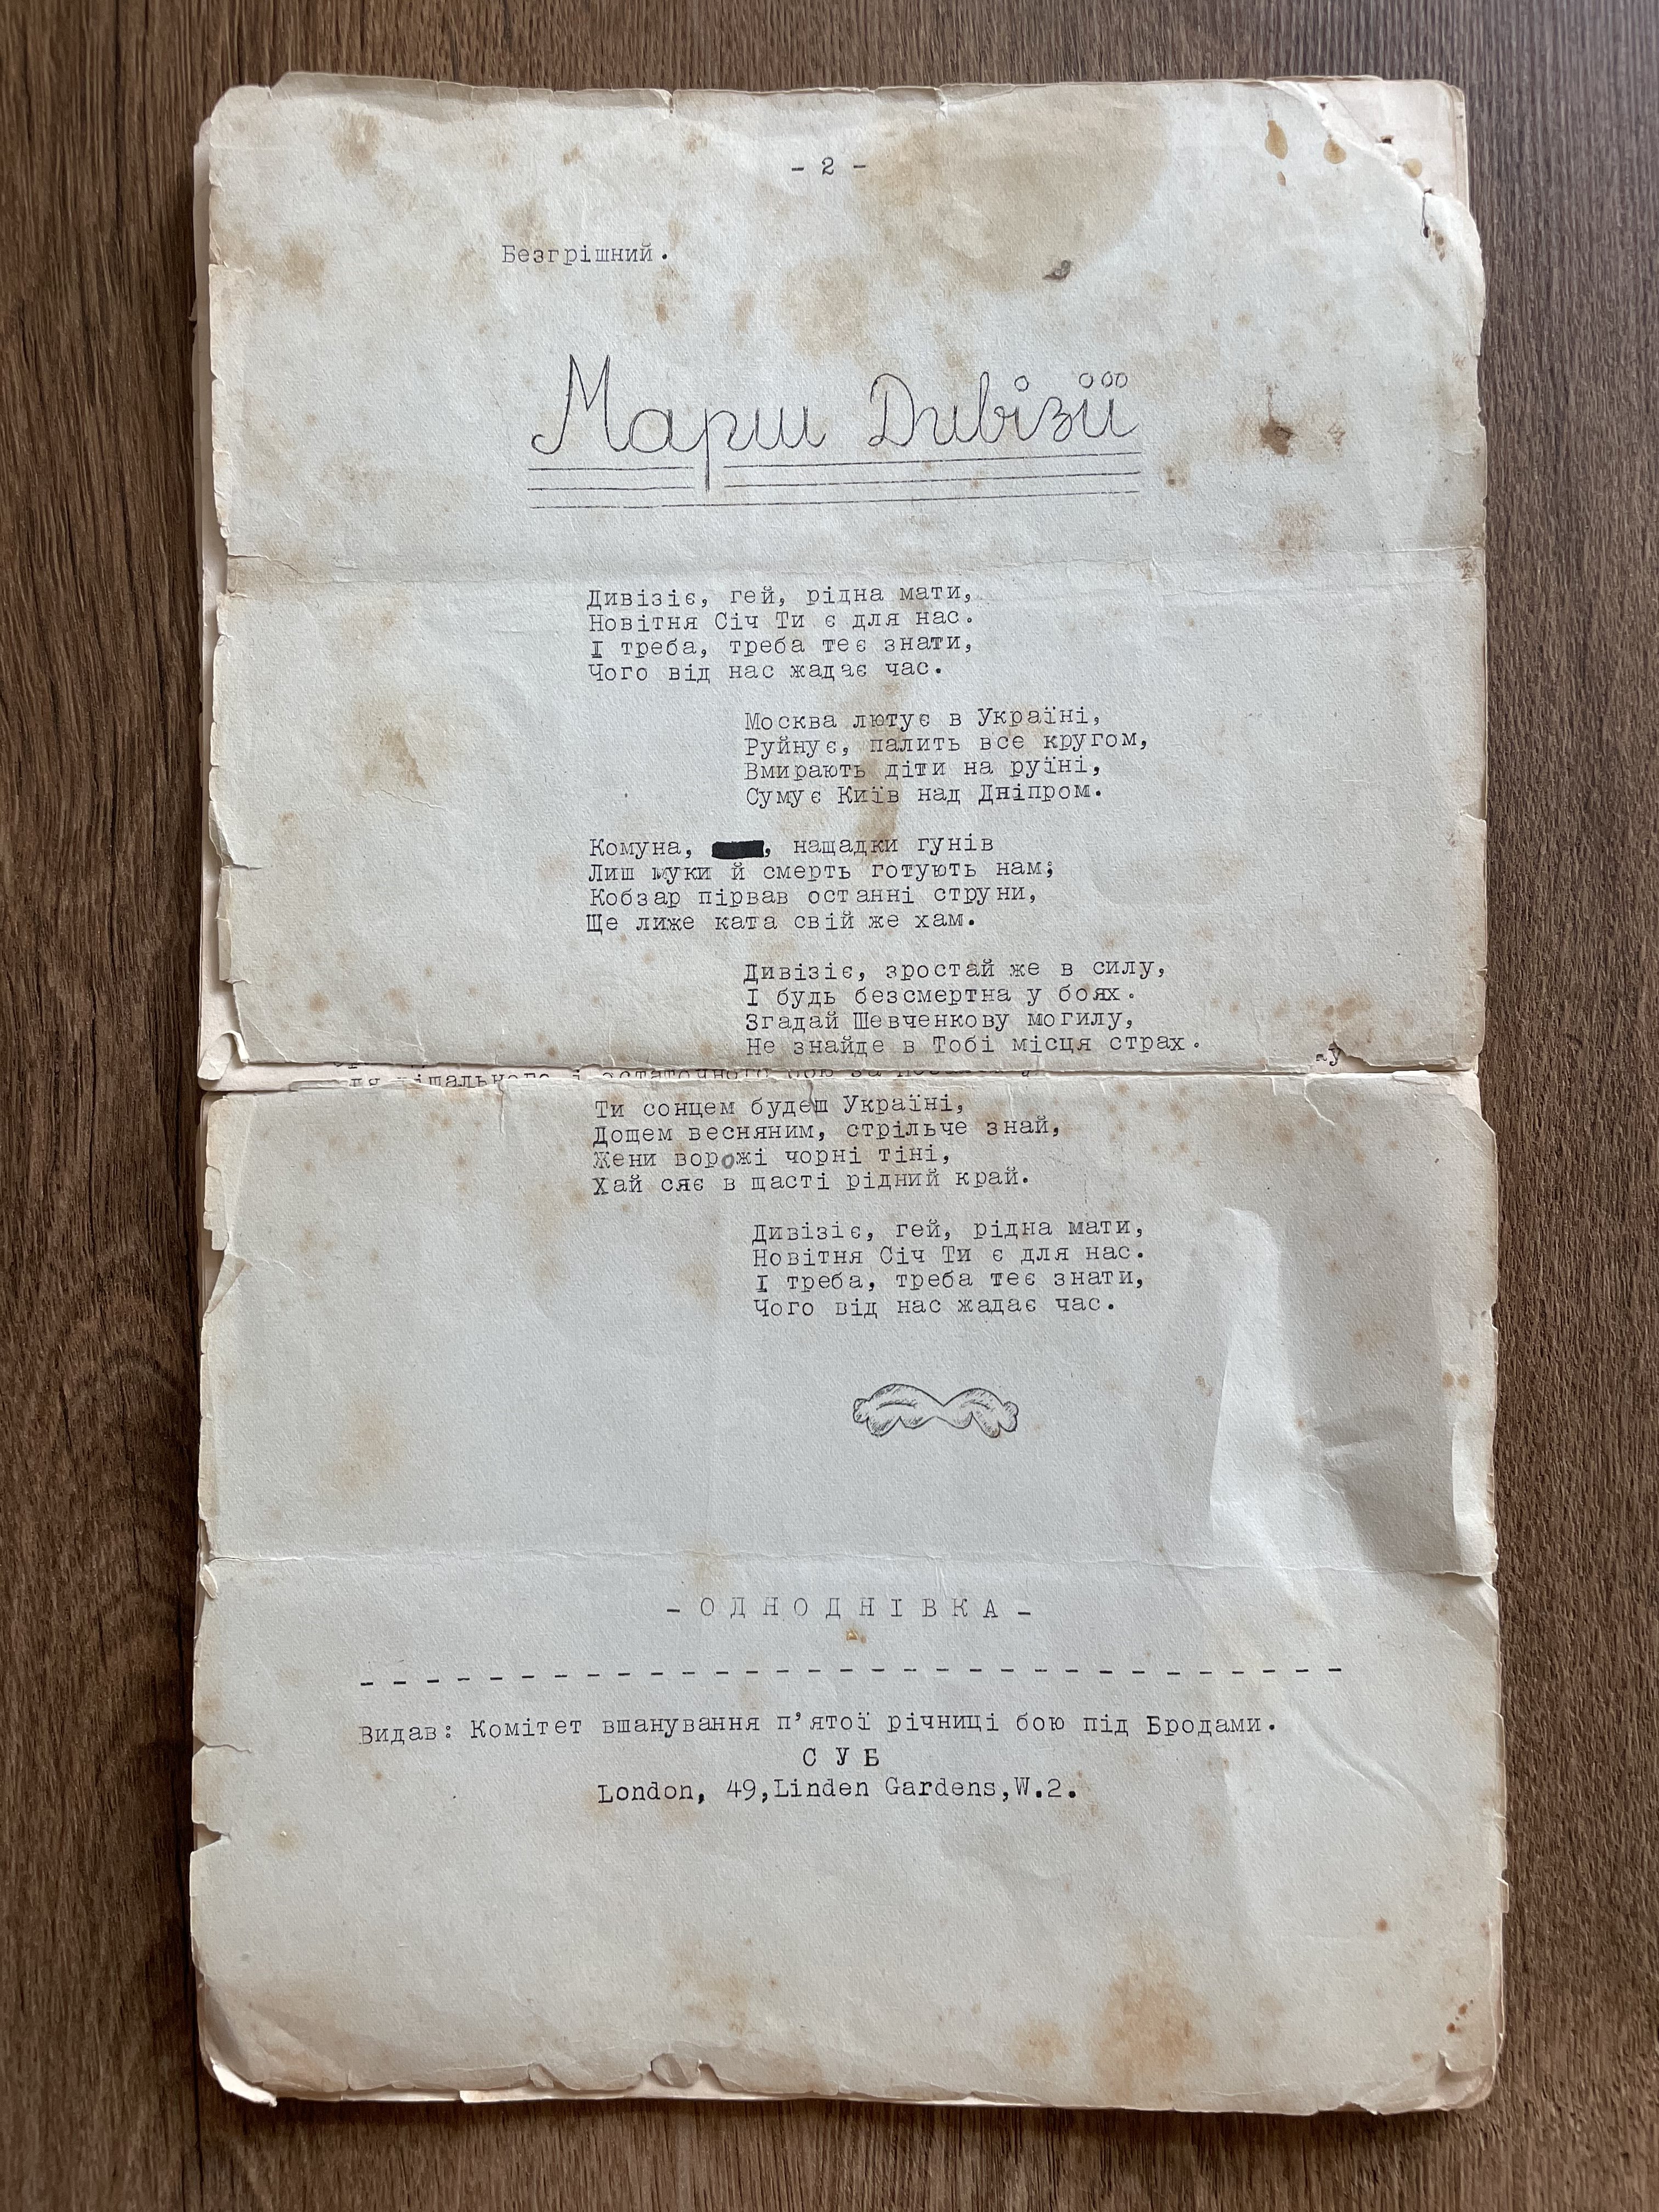 - 2 -
Безгрішний.
Марш Дивізії
Дивізіє, гей, рідна мати,
Новітня Січ Ти є для нас.
І треба, треба теє знати,
Чого від нас жадає час.
Москва лютує в Україні,
Руйнує, палить все кругом,
Вмирають діти на руїні,
Сумує Київ над Дніпром.
Комуна, , нащадки гунів
Лиш муки й смерть готують нам;
Кобзар пірвав останні струни,
Ще лиже ката свій же хам.
Дивізіє, зростай же в силу,
І будь безсмертна у боях.
Згадай Шевченкову могилу,
Не знайде в Тобі місця страх.
Ти сонцем будеш Україні,
Дощем весняним, стрільче знай,
Жени ворожі чорні тіні,
Хай сяє в щасті рідний край.
Дивізіє, гей, рідна мати,
Новітня Січ Ти є для нас.
І треба, треба теє знати,
Чого від нас жадає час.
- О Д Н О Д Н І В К А -
- - - - - - - - - - - - - - - - - - - - - - - - - - - - - - - -
Видав: Комітет вшанування п'ятої річниці бою під Бродами.
С У Б
London, 49,Linden Gardens,W.2.